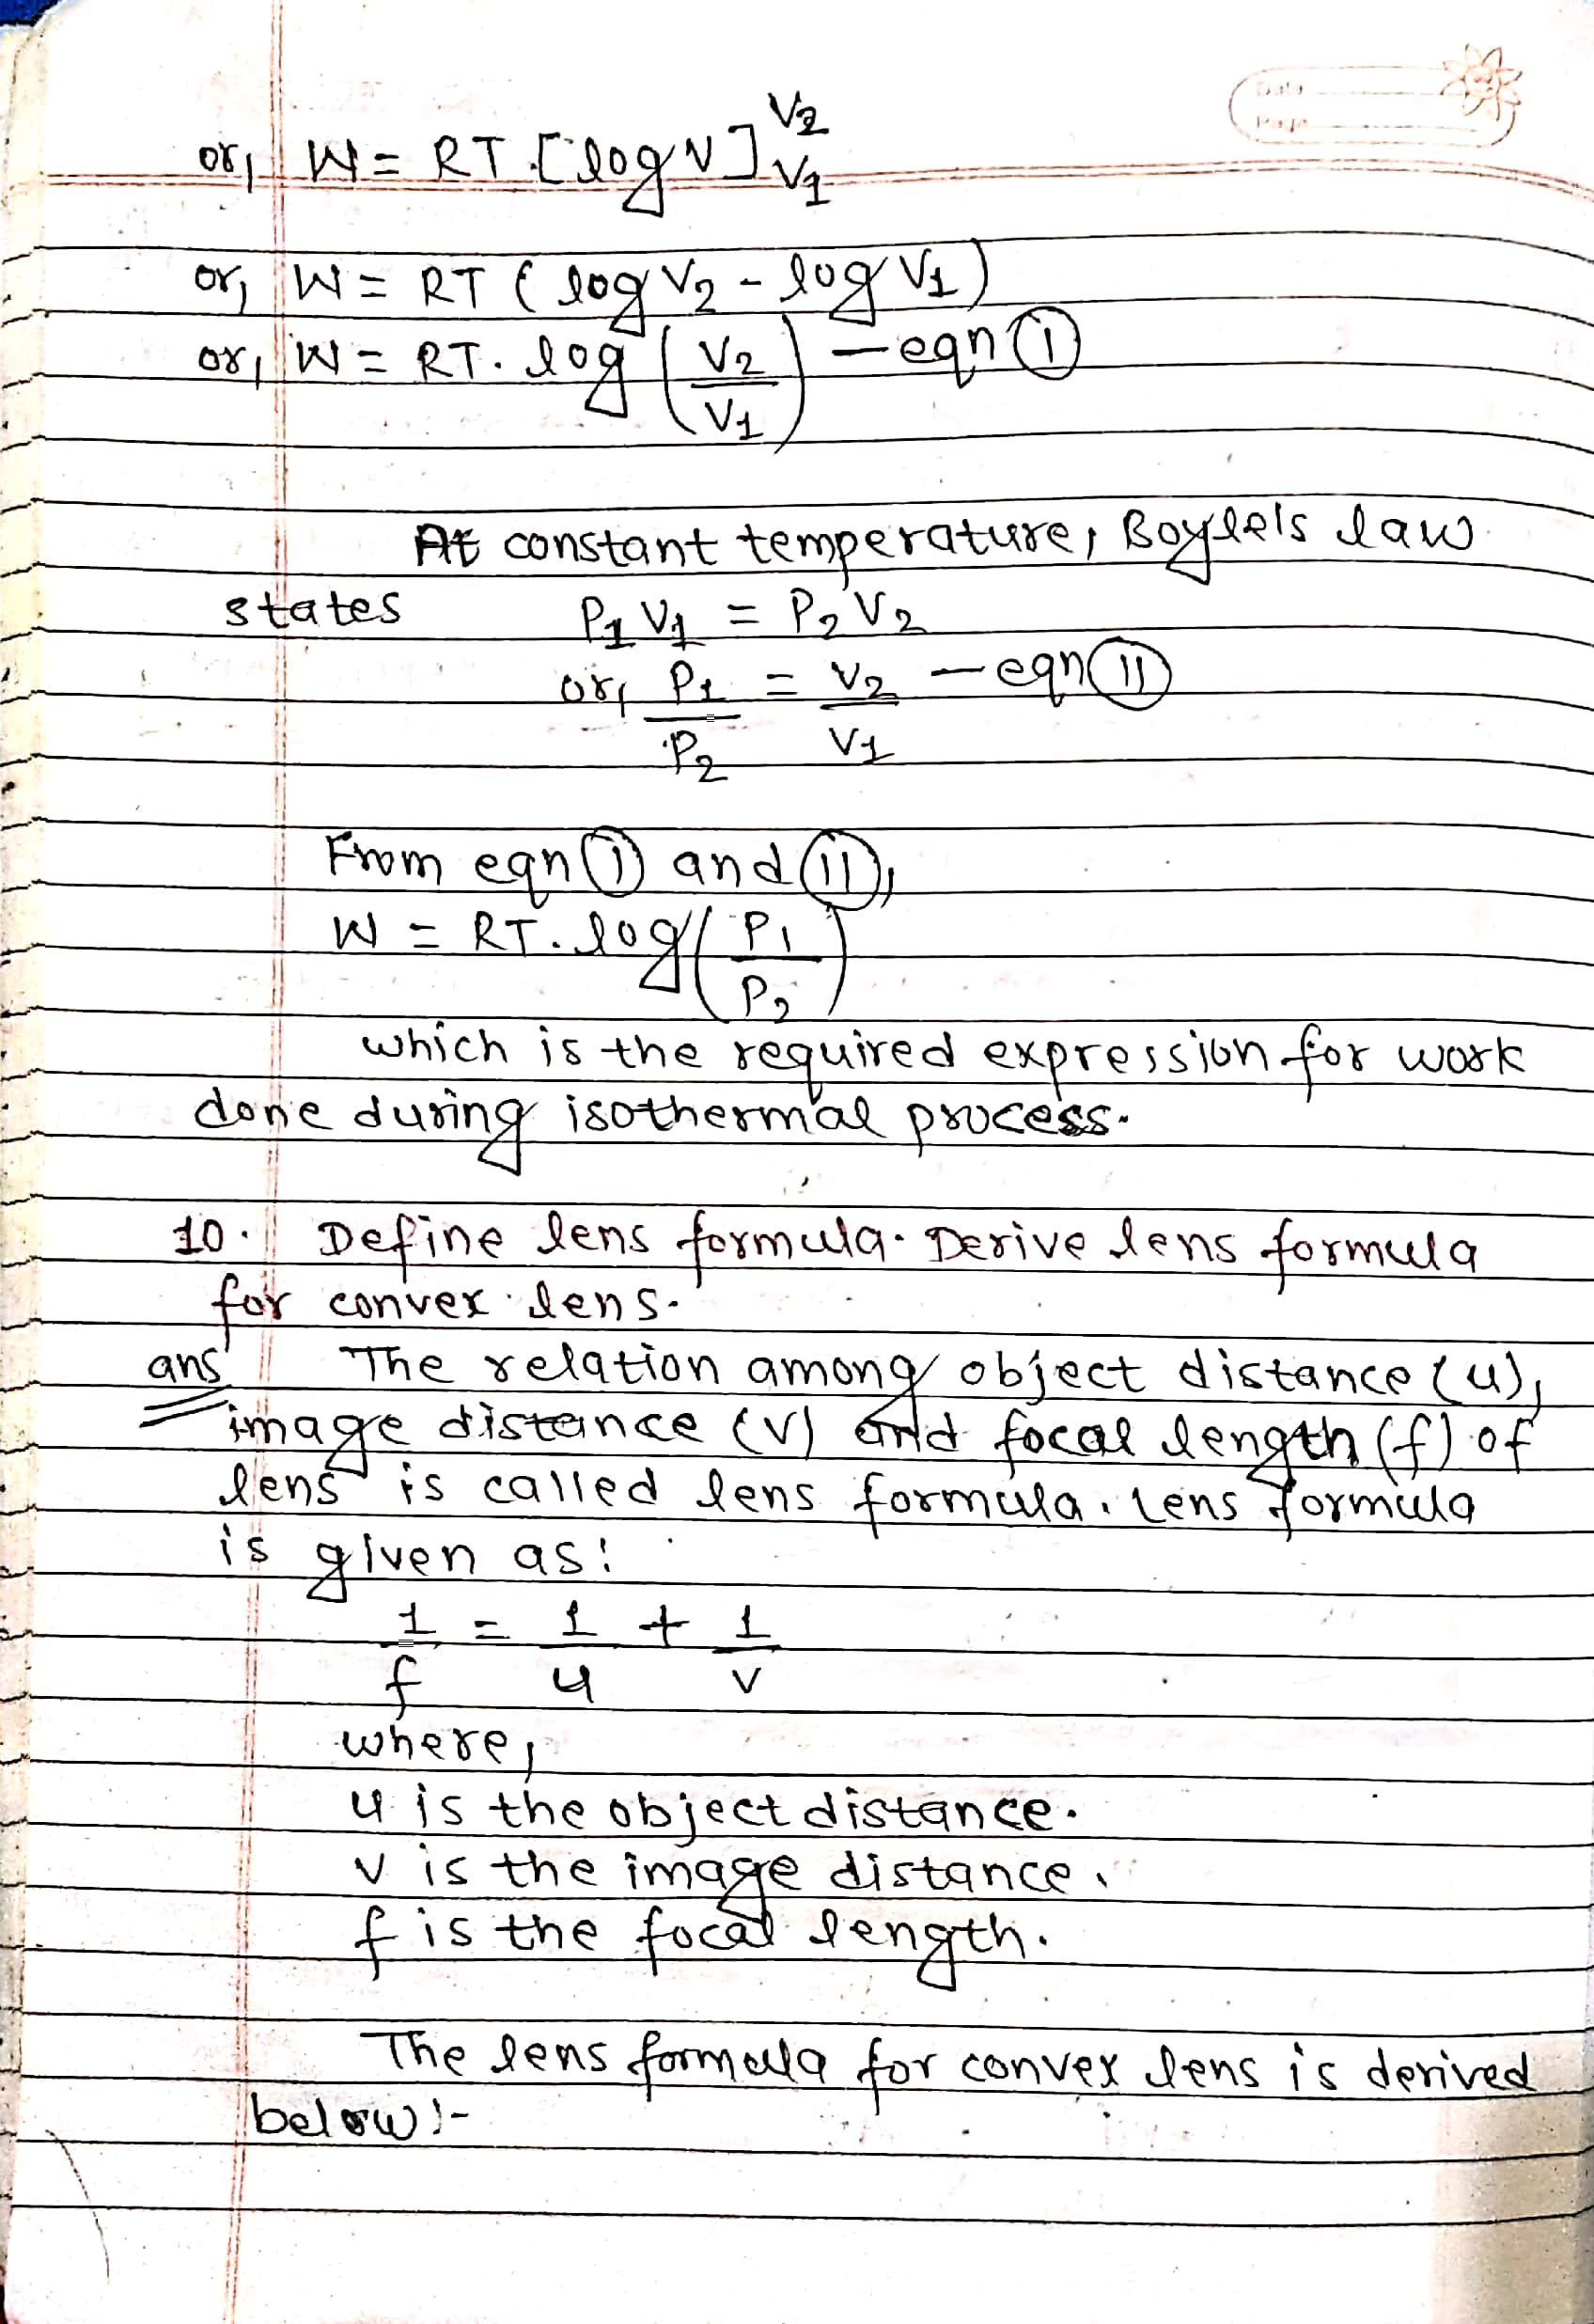 Date
Page
or, W = RT [log V]V₂ V₁
or, W = RT (log V₂ - log V₁)
or, W = RT. log (V₂/V₁) — eqn (i)
At constant temperature, Boyle's law
states P₁V₁ = P₂V₂
or, P₁/P₂ = V₂/V₁ — eqn (ii)
From eqn (i) and (ii),
W = RT. log (P₁/P₂)
which is the required expression for work
done during isothermal process.
10. Define lens formula. Derive lens formula
for convex lens.
ans The relation among object distance (u),
image distance (v) and focal length (f) of
lens is called lens formula. Lens formula
is given as:
1/f = 1/u + 1/v
where,
u is the object distance.
v is the image distance.
f is the focal length.
The lens formula for convex lens is derived
below:-